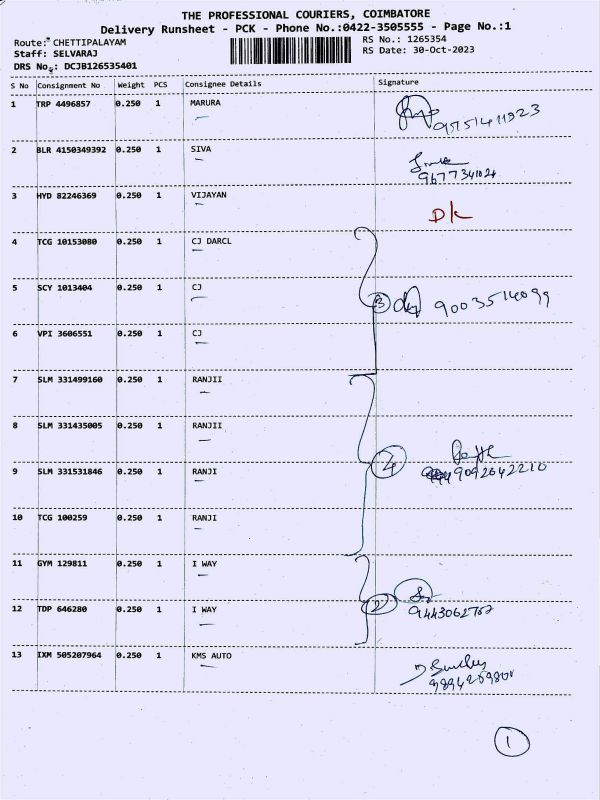 THE PROFESSIONAL COURIERS, COIMBATORE
Delivery Runsheet - PCK - Phone No.:0422-3505555 - Page No.:1
Route: CHETTIPALAYAM
RS No.: 1265354
Staff: SELVARAJ
RS Date: 30-Oct-2023
DRS No.: DCJB126535401
S No Consignment No Weight PCS Consignee Details Signature
1 TRP 4496857 0.250 1 MARURA
9751411923
2 BLR 4150349392 0.250 1 SIVA
9677341024
3 HYD 82246369 0.250 1 VIJAYAN
D/L
4 TCG 10153080 0.250 1 CJ DARCL
5 SCY 1013404 0.250 1 CJ
3 9003514099
6 VPI 3606551 0.250 1 CJ
7 SLM 331499160 0.250 1 RANJII
8 SLM 331435005 0.250 1 RANJII
9 SLM 331531846 0.250 1 RANJI
4 9092642210
10 TCG 100259 0.250 1 RANJI
11 GYM 129811 0.250 1 I WAY
12 TDP 646280 0.250 1 I WAY
2 9443062762
13 IXM 505207964 0.250 1 KMS AUTO
1